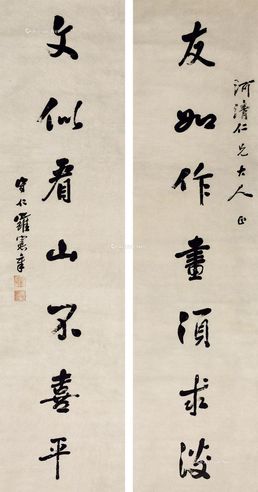 河清仁兄大人正
友如作畫須求淡
文似看山不喜平
守仁羅憲章